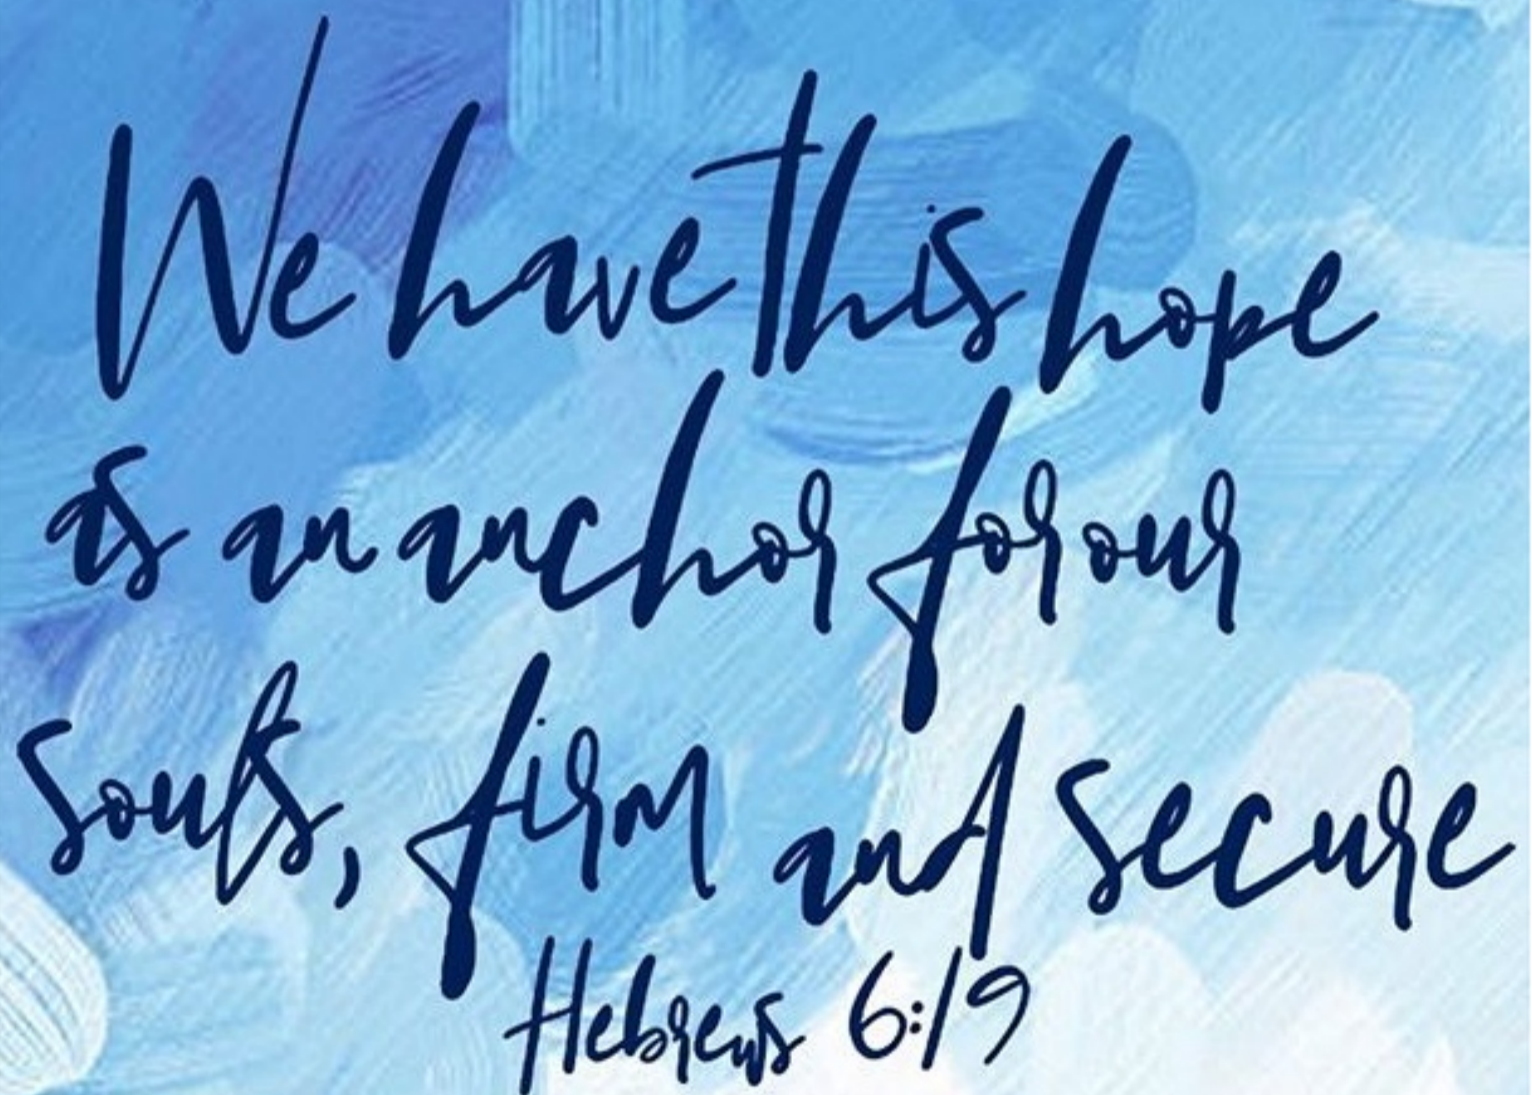 We have this hope
as an anchor for our
souls, firm and secure
Hebrews 6:19